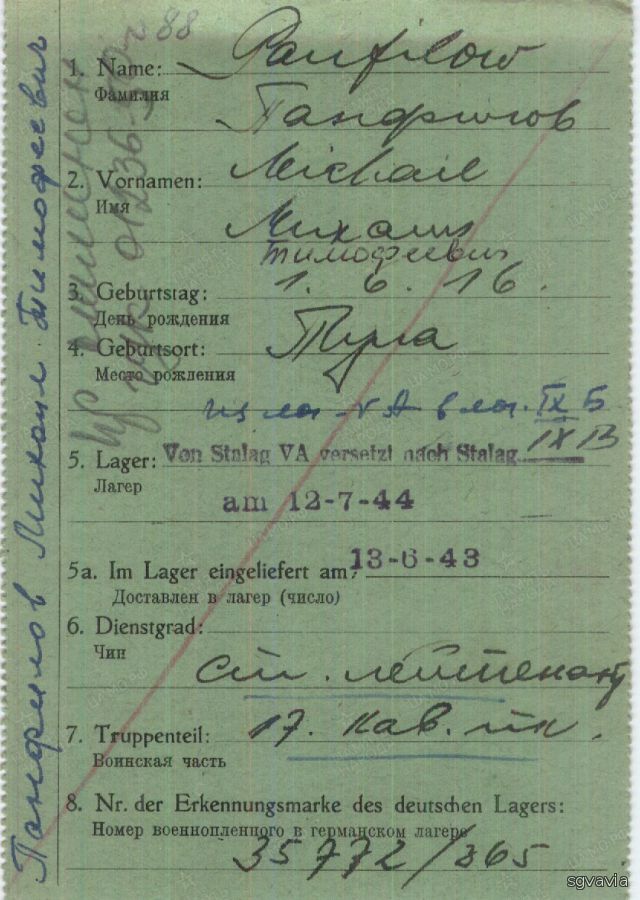 88
1. Name: Panfilow
Фамилия
Панфилов
2. Vornamen: Michail
Имя
Михаил
Тимофеевич
3. Geburtstag: 1. 6. 16.
День рождения
4. Geburtsort: Тула
Место рождения
из лаг VA в лаг. IX Б
5. Lager: Von Stalag VA versetzt nach Stalag IX B
Лагер
am 12-7-44
5a. Im Lager eingeliefert am: 13-6-43
Доставлен в лагер (число)
6. Dienstgrad:
Чин
ст. лейтенант
7. Truppenteil: 17. кав. пк.
Воинская часть
8. Nr. der Erkennungsmarke des deutschen Lagers:
Номер военнопленного в германском лагере
35772/865
Панфилов Михаил Тимофеевич
sgvavia